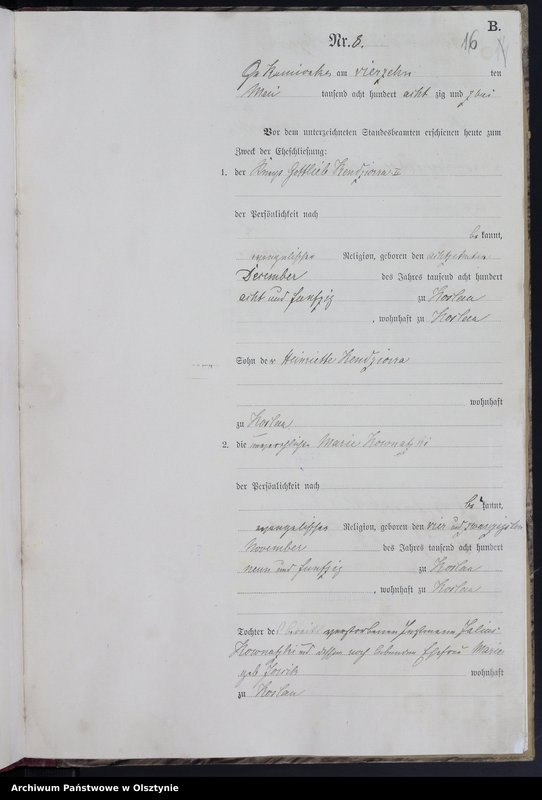 B.
Nr. 8.
16
am vierzehn ten
Mai tausend acht hundert acht zig und zwei
Vor dem unterzeichneten Standesbeamten erschienen heute zum
Zweck der Eheschließung:
1. der Knecht Gottlieb Kendziorra II
der Persönlichkeit nach
be kannt,
evangelischer Religion, geboren den
December des Jahres tausend acht hundert
acht und funfzig zu Koslau
, wohnhaft zu Koslau
Sohn der Henriette Kendziorra
wohnhaft
zu Koslau
2. die unverehelichte Marie Kownatzki
der Persönlichkeit nach
be kannt,
evangelischer Religion, geboren den vier und zwanzigsten
November des Jahres tausend acht hundert
neun und funfzig zu Koslau
, wohnhaft zu Koslau
Tochter des verstorbenen Instmann Julius
Kownatzki und dessen noch lebenden Ehefrau Marie
geb wohnhaft
zu Koslau
Archiwum Państwowe w Olsztynie